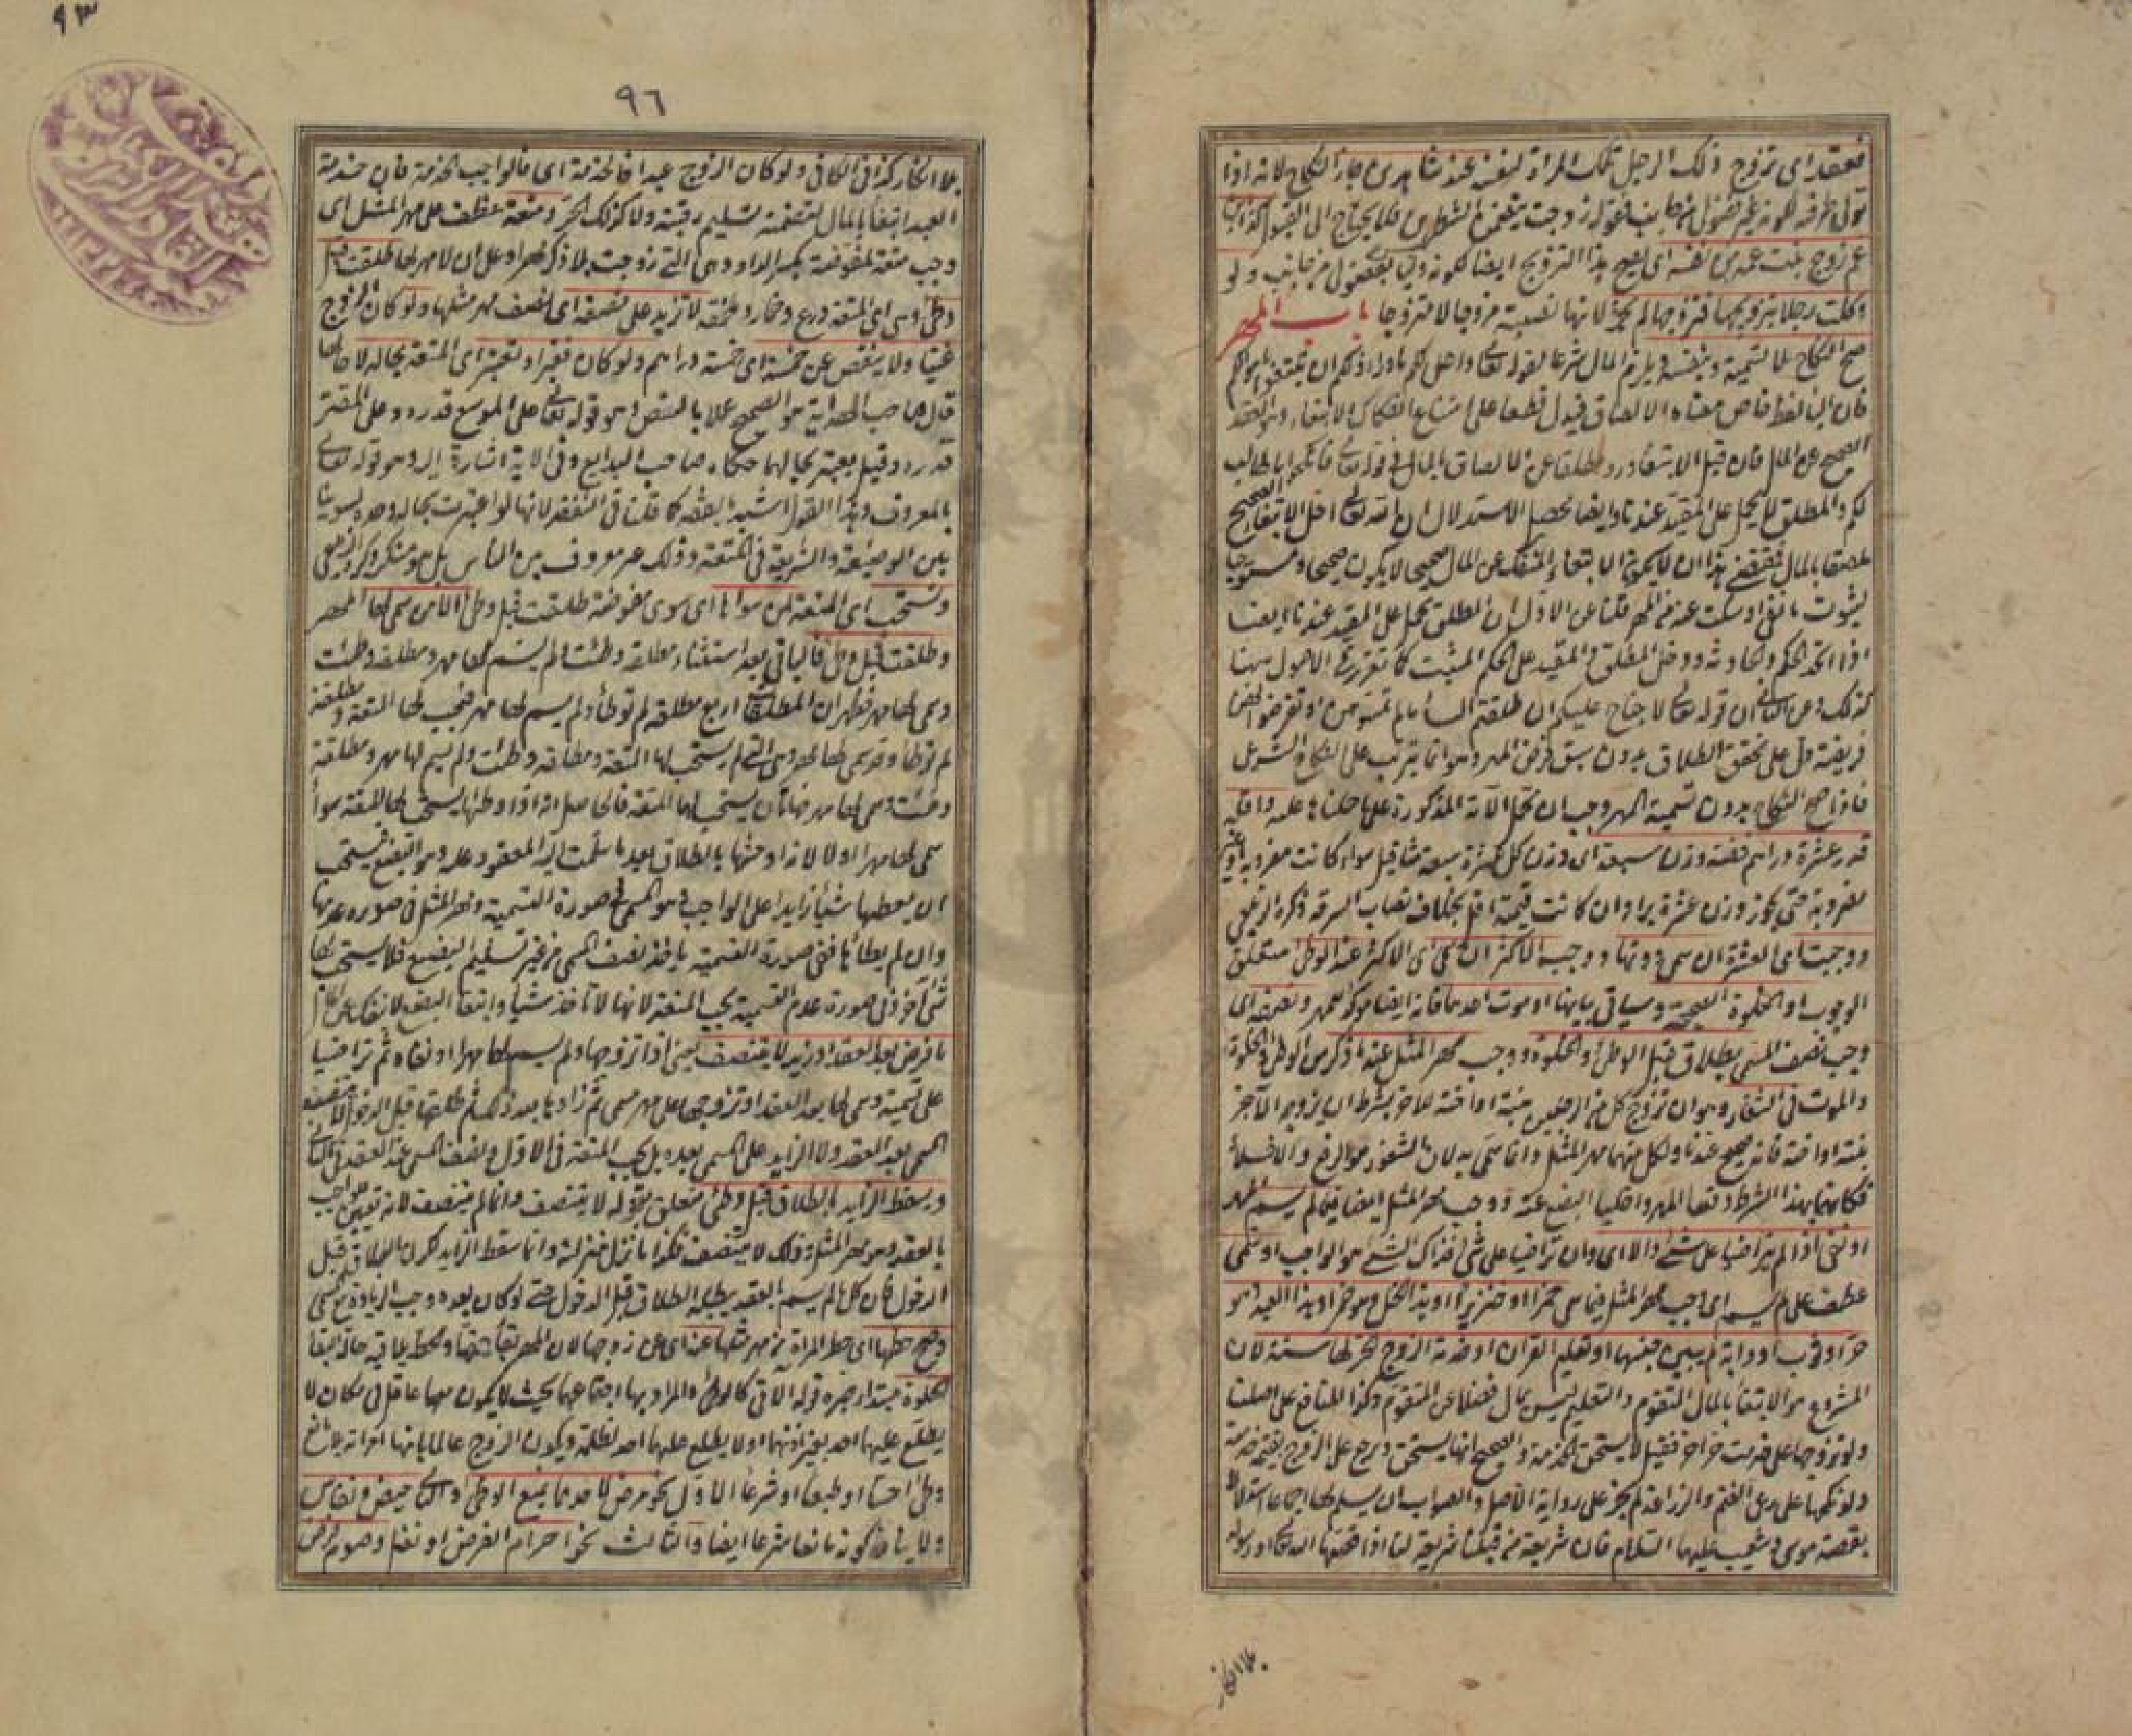 فعقد اى تزوج ذلك الرجل تلك المراة لنفسه عند شاهدين جاز النكاح لانه اذا
تولى طرفيه فقوله زوجت يتضمن الشطرين فلا يحتاج الى القبول كذا ابن
عم زوج بنت عمه من نفسه اى يصح هذا التزويج ايضا لكونه وليا من جانب ولو
وكلت رجلا بتزويجها فتزوجها لم يجز لانها نصبته مزوجا لا متزوجا باب المهر
صح النكاح بلا تسمية ونفيه ويلزم المال شرعا لقوله تعالى واحل لكم ما وراء ذلكم ان تبتغوا باموالكم
فان الباء لفظ خاص معناه الالصاق فيدل قطعا على امتناع انفكاك الابتغاء وهو العقد
الصحيح عن المال فان قيل الابتغاء ورد مطلقا عن الالصاق بالمال فى قوله تعالى فانكحوا ما طاب
لكم والمطلق لا يحمل على المقيد عندنا وايضا محصل الاستدلال ان الله تعالى احل الابتغاء الصحيح
ملصقا بالمال فمقتضى هذا ان لا يكون الابتغاء المنفك عن المال صحيحا
اذا اتحد الحكم والحادثة ودخل المطلق والمقيد على الحكم المثبت كما تقرر فى الاصول وههنا
كذلك وعن الثانى ان قوله تعالى لا جناح عليكم ان طلقتم النساء ما لم تمسوهن او تفرضوا لهن
فريضة دل على تحقق الطلاق بدون سبق فرض المهر وهو انما يترتب على النكاح الشرعى
فاذا صح النكاح بدون تسمية المهر وجب ان تحمل الآية المذكورة على ما حملنا عليه واقله
قدر عشرة دراهم فضة وزن سبعة اى وزن كل عشرة سبعة مثاقيل سواء كانت مضروبة او غير
مضروبة حتى يجوز وزن عشرة تبرا وان كانت قيمته اقل بخلاف نصاب السرقة ذكره الزيلعى
ووجبت اى العشرة ان سمى دونها ووجب الاكثر ان سمى اى الاكثر عند الوطئ متعلق
الوجوب او الخلوة الصحيحة وسياتى بيانها او موت احدهما فانه ايضا مؤكد للمهر ونصفه اى
وجب نصف المسمى بطلاق قبل الوطئ او الخلوة ووجب مهر المثل عند ما ذكر من الوطئ والخلوة
والموت فى الشغار وهو ان تزوج كل من الرجلين بنته او اخته للاخر بشرط ان يزوجه الآخر
بنته او اخته فانه صحيح عندنا ولكل منهما مهر المثل وانما سمى به لان الشغور هو الرفع والاخلاء
فكانهما بهذا الشرط رفعا المهر واخليا البضع عنه ووجب مهر المثل ايضا فيما لم يسم المهر
او نفى اذا لم يتراضيا على شئ والا اى وان تراضيا على شئ فذاك الشئ هو الواجب او سمى
عطف على لم يسم اى يجب مهر المثل فيما سمى خمرا او خنزيرا او هذا الخل وهو خمر او هذا العبد وهو
حر او ثوب او دابة لم يبين جنسها او تعليم القران او خدمة الزوج الحر لها سنة لان
المشروع هو الابتغاء بالمال المتقوم والتعليم ليس بمال فضلا عن المتقوم وكذا المنافع على اصلنا
ولو تزوجها على خدمت حر اخر فقيل لا يستحق الخدمة والصحيح انها يستحق وترجع على الزوج بقيمة خدمته
ولو نكحها على رعى الغنم والزراعة لم يجز على رواية الاصل والصواب ان يسلم لها اجماعا استدلالا
بقصة موسى وشعيب عليهما السلام فان شريعة من قبلنا شريعة لنا اذا قصها الله تعالى او رسوله
بلا انكار
٩٣
٩٦
بلا انكار كذا فى الكافى ولو كان الزوج عبدا فالخدمة اى فالواجب الخدمة فان خدمة
العبد ابتغاء بالمال لتضمنه تسليم رقبته ولا كذلك الحر ومتعة عطف على مهر المثل اى
وجب متعة لمفوضة بكسر الواو وهى التى زوجت بلا ذكر مهر او على ان لا مهر لها طلقت قبل
وطئ وهى اى المتعة درع وخمار وملحفة لا تزيد على نصفه اى نصف مهر مثلها ولو كان الزوج
غنيا ولا ينقص عن خمسة اى خمسة دراهم ولو كان فقيرا وتعتبر اى المتعة بحاله لا حالها
قال صاحب الهداية هو الصحيح عملا بالنص وهو قوله تعالى على الموسع قدره وعلى المقتر
قدره وقيل يعتبر بحالهما حكاه صاحب البدايع وفى الاية اشارة اليه وهو قوله تعالى
بالمعروف وهذا القول اشبه بالفقه كما قلنا فى النفقة لانها لو اعتبرت بحاله وحده لسوينا
بين الوضيعة والشريفة فى المتعة وذلك غير معروف بين الناس بل هو منكر ذكره الزيلعى
وتستحب اى المتعة لمن سواها اى سوى مفوضة طلقت قبل وطئ الا من سمى لها المهر
وطلقت قبل وطئ فالباقى بعد استثناء مطلقة وطئت لم يسم لها مهر ومطلقة وطئت
وسمى لها مهر فظهر ان المطلقات اربع مطلقة لم توطأ ولم يسم لها مهر فيجب لها المتعة ومطلقة
لم توطأ وقد سمى لها مهر وهى التى لم يستحب لها المتعة ومطلقة وطئت ولم يسم لها مهر ومطلقة
وطئت وسمى لها مهر فهاتان يستحب لهما المتعة فالحاصل انه اذا وطئها يستحب لها المتعة سواء
سمى لها مهرا اولا لانه اوحشها بالطلاق بعد ما سلمت اليه المعقود عليه وهو البضع فيستحب
ان يعطيها شيأ زايدا على الواجب وهو المسمى فى صورة التسمية ومهر المثل فى صورة عدمها
وان لم يطأها ففى صورة التسمية ياخذ نصف المسمى من غير تسليم البضع فلا يستحب لها
شئ آخر وفى صورة عدم التسمية يجب المتعة لانها لا تاخذ شيأ وابتغاء البضع لا ينفك عن المال
ما فرض بعد العقد او زيد لا يتنصف يعنى اذا تزوجها ولم يسم لها مهرا او نفاه ثم تراضيا
على تسمية وسمى لها بعد العقد او تزوجها على مهر مسمى ثم زادها بعد ذلك ثم طلقها قبل الدخول لا يتنصف
المسمى بعد العقد ولا الزايد على المسمى بعده بل يجب المتعة فى الاول ونصف المسمى عند العقد فى الثانى
ويسقط الزايد بالطلاق قبل وطئ متعلق بقوله لا يتنصف وانما لم يتنصف لانه تعيين للواجب
بالعقد وهو مهر المثل وذلك لا يتنصف فكذا ما نزل منزلته وانما سقط الزايد لطلاق قبل
الدخول فان كل ما لم يسم بالعقد يبطله الطلاق قبل الدخول حتى لو كان بعده وجب الزيادة مع المسمى
وصح حطها اى حط المراة من مهرها عنه اى عن زوجها لان المهر بقاء حقها والحط يلاقيه حالة البقاء
الخلوة مبتدأ خبره قوله الآتى كالوطئ والمراد بها اجتماعهما بحيث لا يكون معهما عاقل فى مكان لا
يطلع عليهما احد بغير اذنهما او لا يطلع عليهما احد لظلمة ويكون الزوج عالما بانها امراته بلا مانع
وطئ حسا او طبعا او شرعا الاول نحو مرض لاحدهما يمنع الوطئ والثانى حيض ونفاس
ولا ينافى كونه مانعا شرعا ايضا والثالث نحو احرام لفرض او نفل وصوم فرض